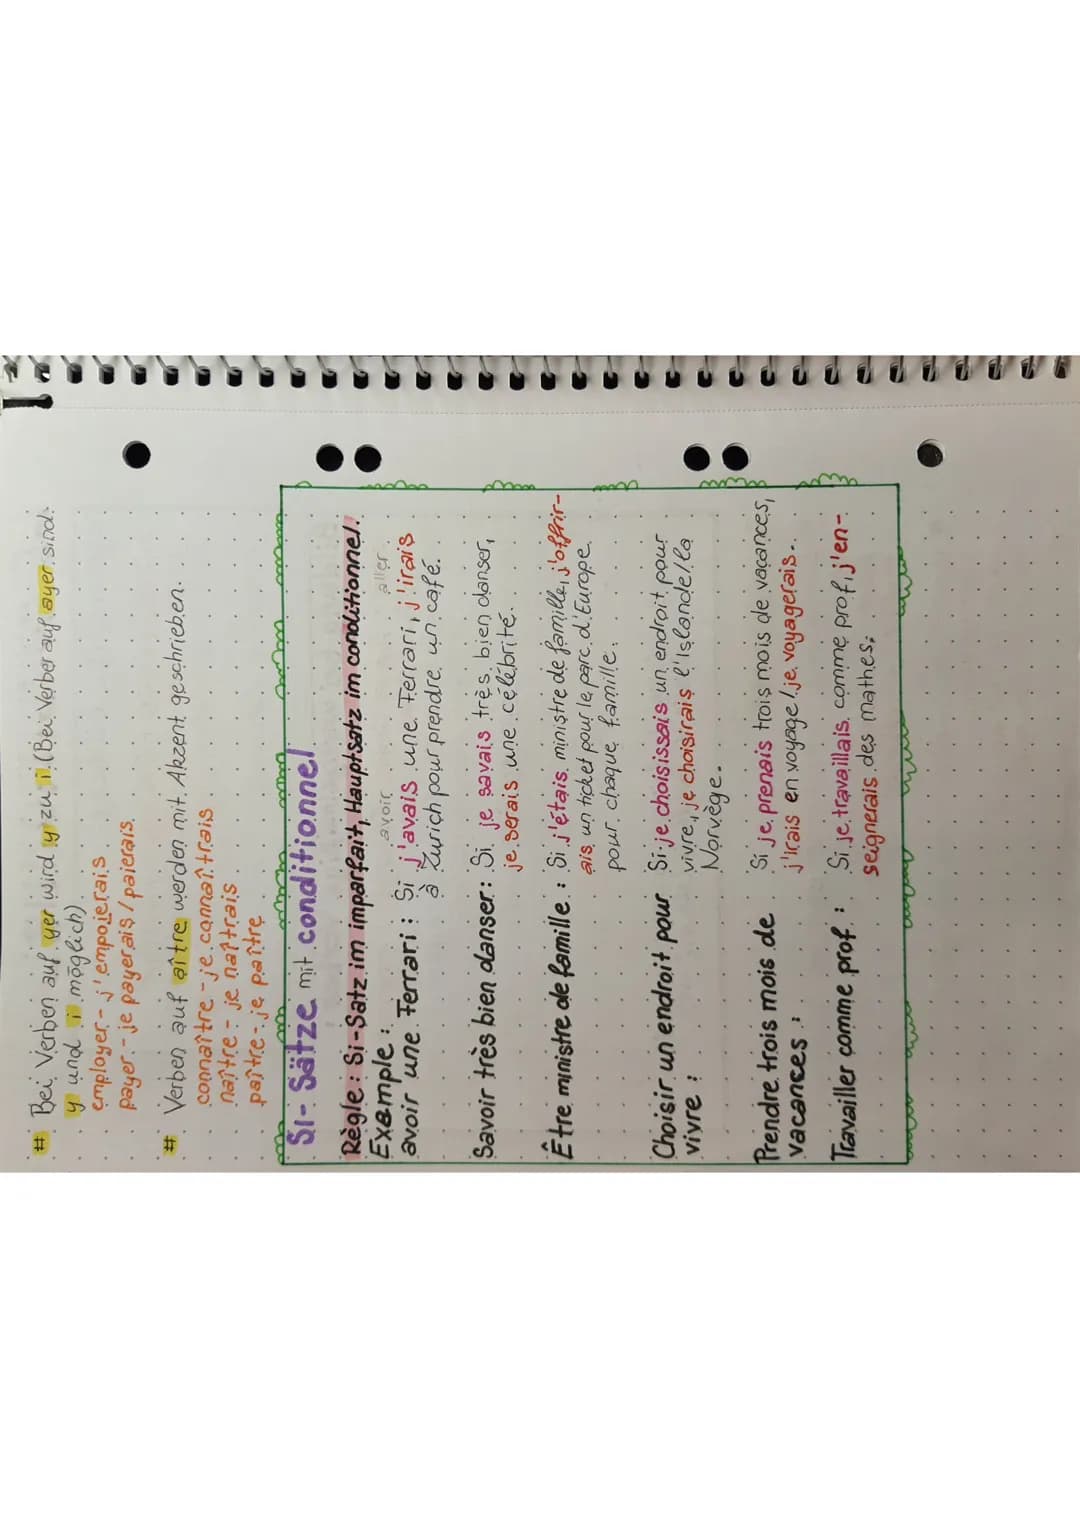 # Bei Verben auf yer wird y zu i. (Bei Verber auf ayer sind
y und i möglich)
employer - j'empoierais
payer - je payerais / paierais
# Verben auf aître werden mit Akzent geschrieben.
connaître - je connaîtrais
naître - je naîtrais
paître - je paître
Si - Sätze mit conditionnel
Règle : Si - Satz im imparfait, Hauptsatz im conditionnel.
Example :
avoir aller
avoir une Ferrari : Si j'avais une Ferrari, j'irais
à Zurich pour prendre un café.
Savoir très bien danser : Si je savais très bien danser,
je serais une célébrité.
Être ministre de famille : Si j'étais ministre de famille, j'offrir-
ais un ticket pour le parc d'Europe
pour chaque famille.
Choisir un endroit pour Si je choisissais un endroit pour
vivre : vivre, je choisirais l'Islande/la
Norvège.
Prendre trois mois de Si je prenais trois mois de vacances,
vacances : j'irais en voyage / je voyagerais.
Travailler comme prof : Si je travaillais comme prof, j'en-
seignerais des mathes.